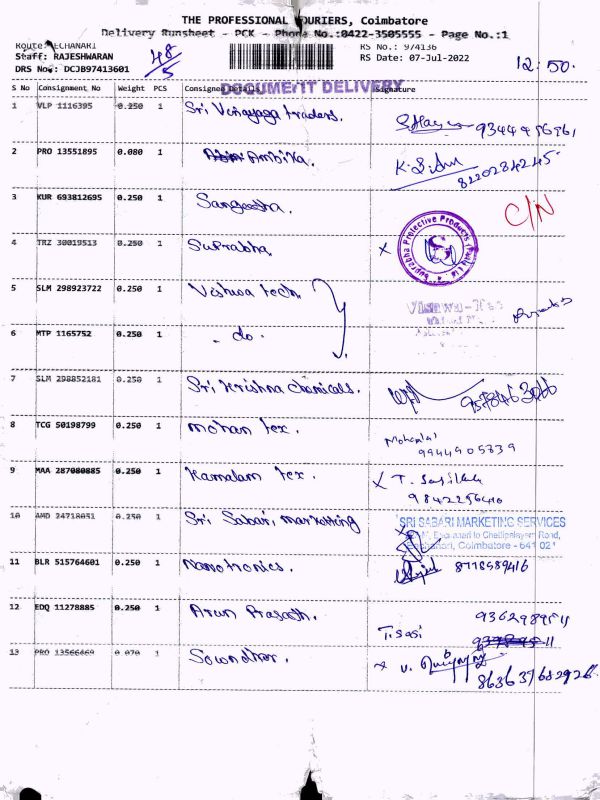 THE PROFESSIONAL COURIERS, Coimbatore
Delivery Runsheet - PCK - Phone No.:0422-3505555 - Page No.:1
Route: ECHANARI
RS No.: 974136
Staff: RAJESHWARAN
48/5
RS Date: 07-Jul-2022
12:50.
DRS No.: DCJB97413601
DOCUMENT DELIVERY
S No Consignment No Weight PCS Consignee Details Signature
1 VLP 1116395 0.250 1 Sri Vinayaga traders.
2 PRO 13551895 0.080 1 Ambika. 8220284245
3 KUR 693812695 0.250 1 Sangeetha. C/N
4 TRZ 30019513 0.250 1 Suprabha. x Suprabha Protective Products
5 SLM 298923722 0.250 1 Vishwa tech.
6 MTP 1165752 0.250 1 - do -
7 SLM 298852181 0.250 1 Sri Krishna chemicals.
8 TCG 50198799 0.250 1 mohan tex. Mohanlal
9944905839
9 MAA 287080885 0.250 1 Kamalam tex. x T.
9842256410
10 AMD 24718051 0.250 1 Sri Sabari marketting SRI SABARI MARKETING SERVICES
Echanari to Chettipalayam Road,
Echanari, Coimbatore - 641 021
11 BLR 515764601 0.250 1 Nanotronics. 8778589416
12 EDQ 11278885 0.250 1 Arun Prasath.
T. Sasi
13 PRO 13566669 0.070 1 Sowndhar. x V.